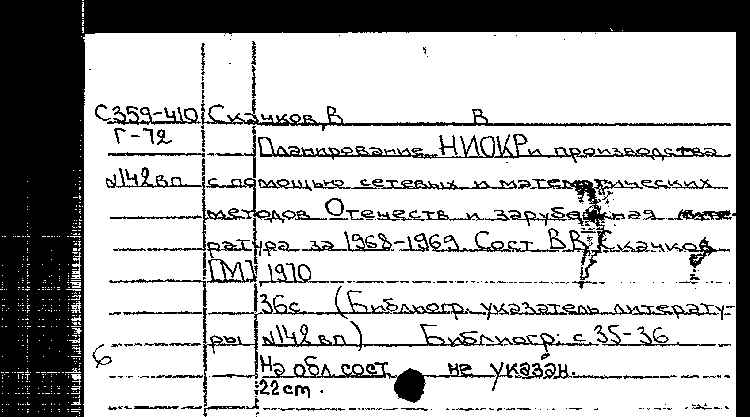 С359-410 Скачков, В В
Г-72 Планирование НИОКР и производства
№142вп с помощью сетевых и математических
методов Отечеств и зарубежная лите-
ратура за 1968-1969 Сост ВВ Скачков
[М] 1970
36с (Библиогр. указатель литерату-
ры №142вп) Библиогр: с.35-36
6 На обл сост не указан.
22cm.